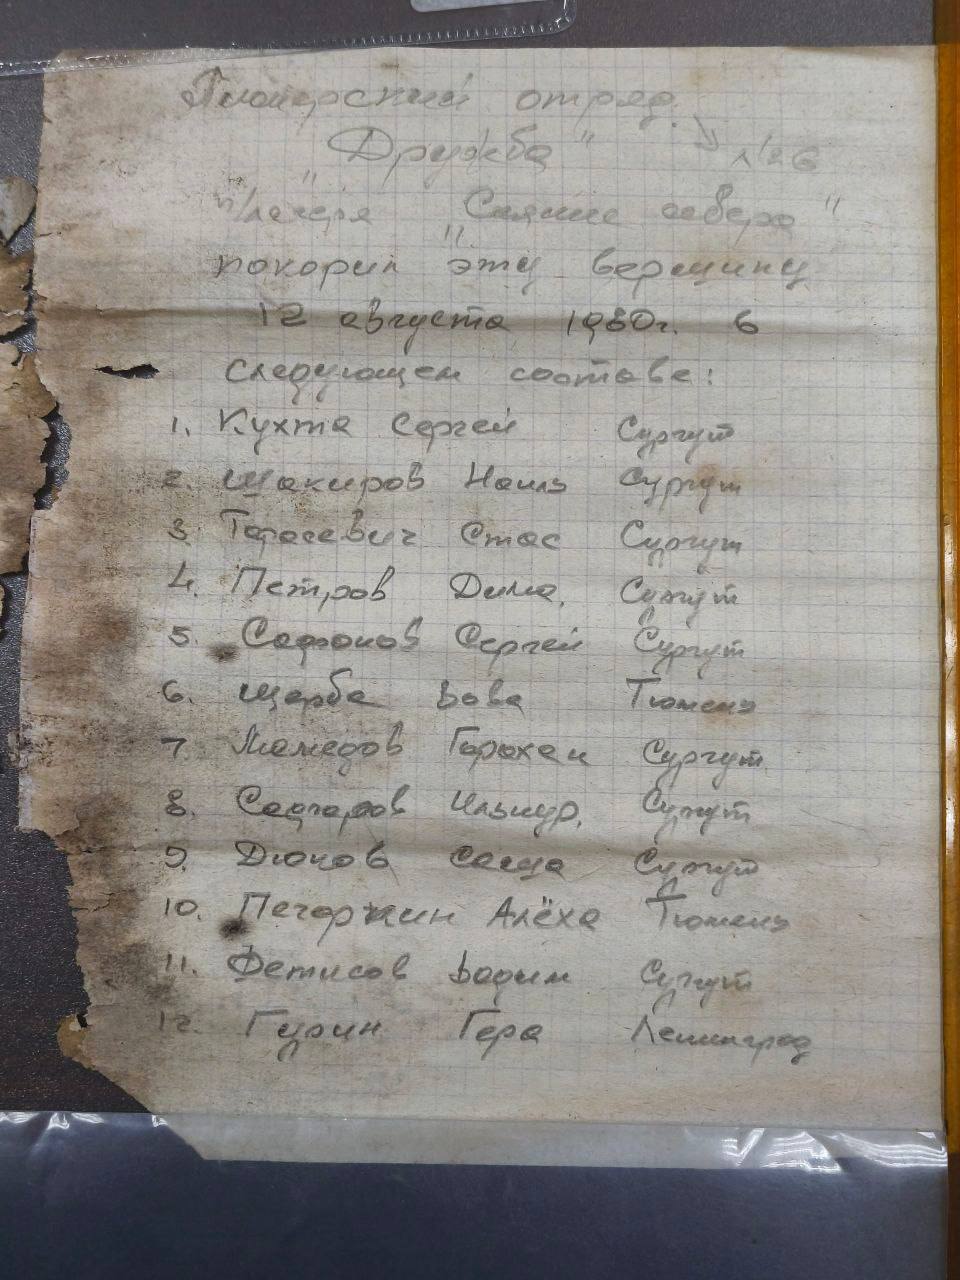 Пионерский отряд
"Дружба"
п/лагеря "Сияние севера"
покорил эту вершину
12 августа 1980г. в
следующем составе:
1. Кухта Сергей Сургут
2. Шакиров Наиль Сургут
3. Тарасевич Стас Сургут
4. Петров Дима, Сургут
5. Сафонов Сергей Сургут
6. Щерба Вова Тюмень
7. Мамедов Сургут
8. Саттаров Ильнур, Сургут
9. Дюков Саша Сургут
10. Печоркин Алёха Тюмень
11. Фетисов Вадим Сургут
12. Гурин Гера Ленинград